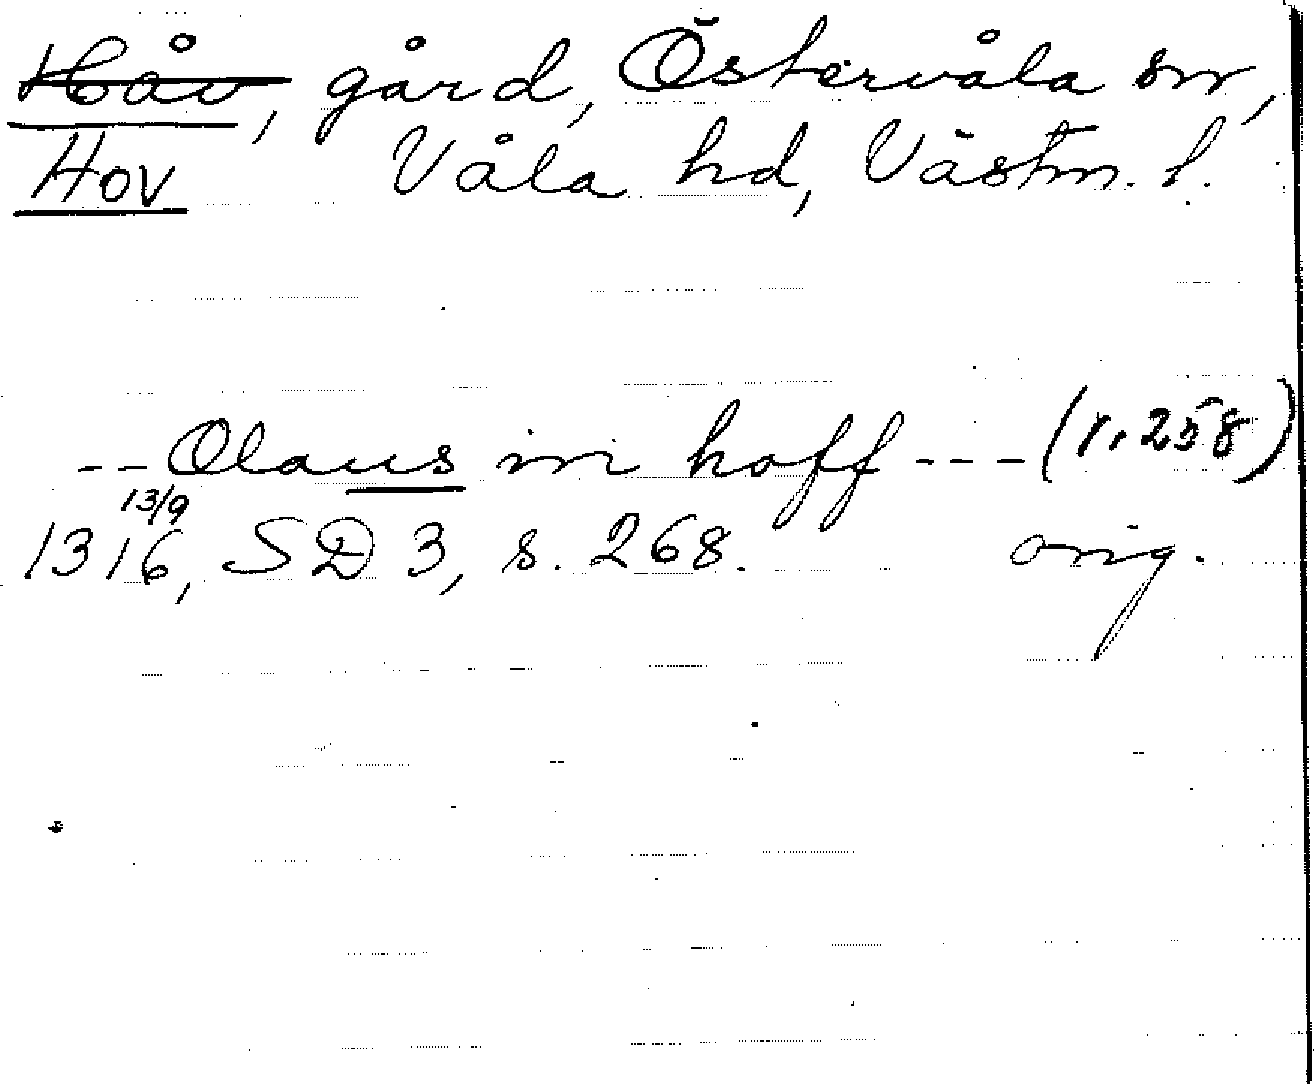 Håv, gård, Östervåla sn,
Hov Våla hd, Västm. l.
-- Olaus in hoff --- (r. 258)
13/9
1316, SD 3, s. 268. orig.